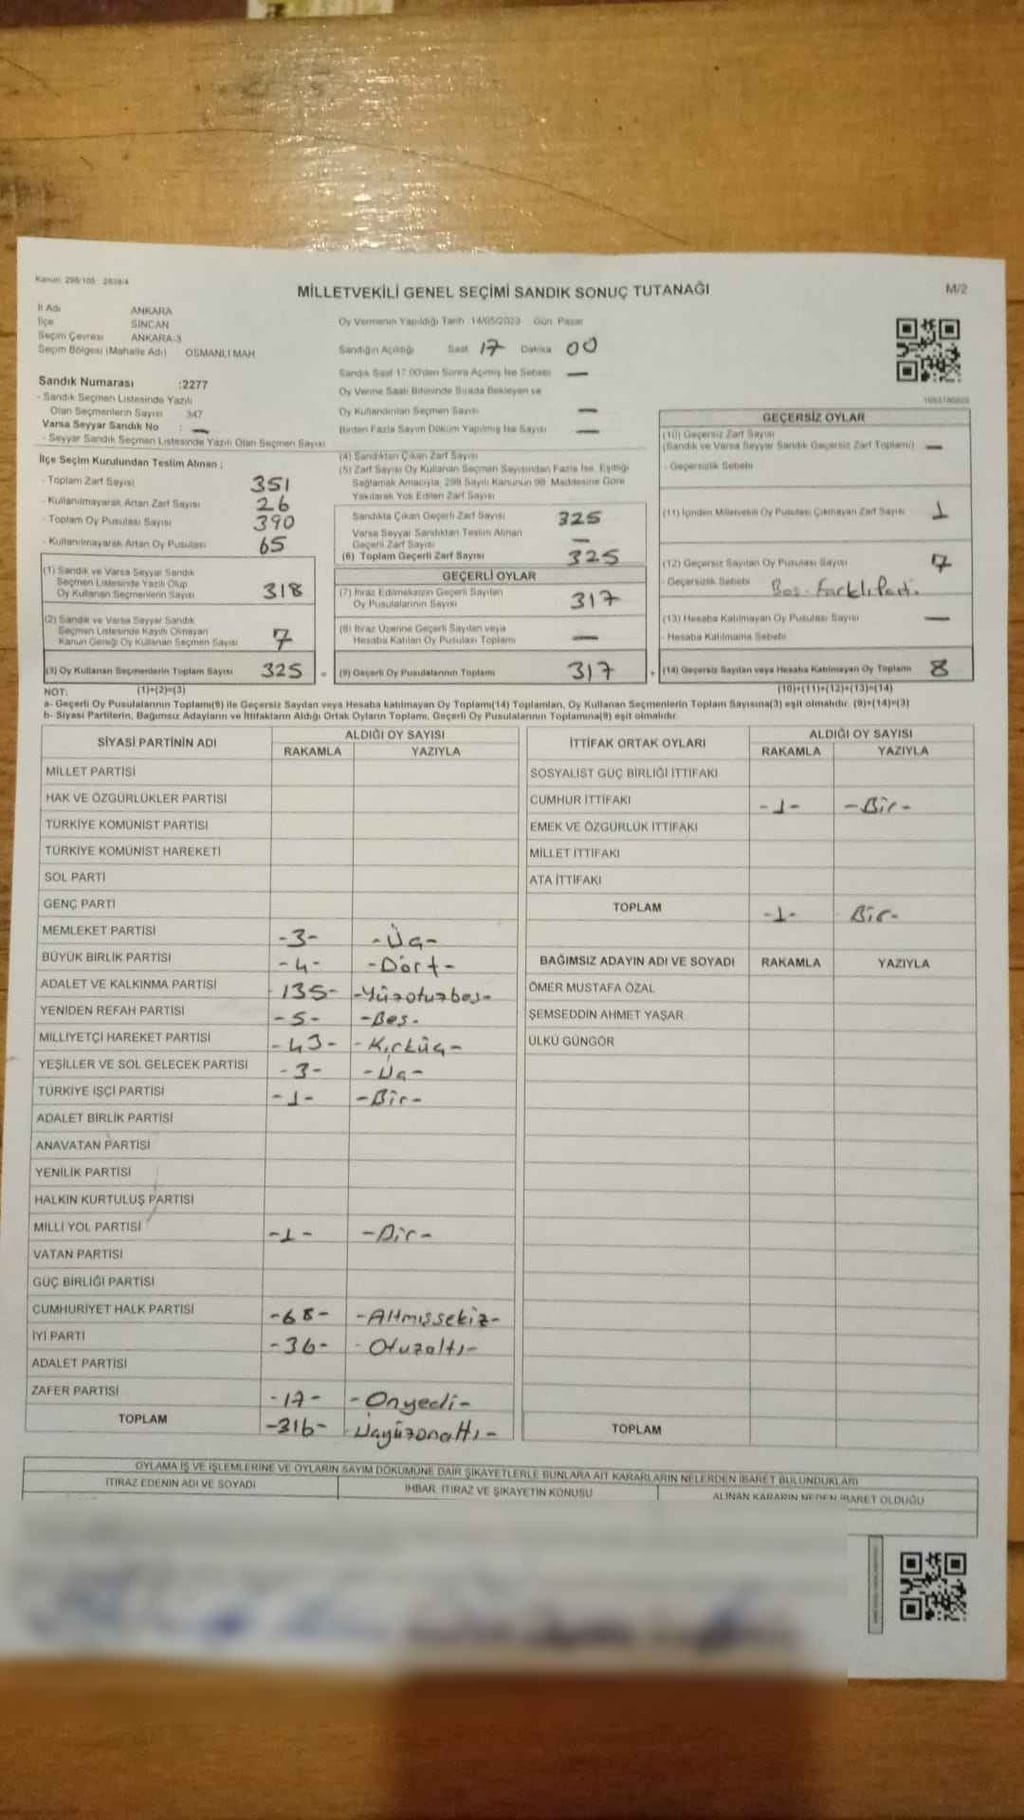 Kanun: 298/105 2839/4
MİLLETVEKİLİ GENEL SEÇİMİ SANDIK SONUÇ TUTANAĞI
M/2
İl Adı ANKARA
İlçe SİNCAN
Seçim Çevresi ANKARA-3
Seçim Bölgesi (Mahalle Adı) OSMANLI MAH
Oy Vermenin Yapıldığı Tarih :14/05/2023 Gün Pazar
Sandığın Açıldığı Saat 17 Dakika 00
Sandık Saat 17.00'den Sonra Açılmış İse Sebebi —
Oy Verme Saati Bitiminde Sırada Bekleyen ve
Oy Kullandırılan Seçmen Sayısı —
Birden Fazla Sayım Döküm Yapılmış İse Sayısı —
Sandık Numarası :2277
- Sandık Seçmen Listesinde Yazılı
Olan Seçmenlerin Sayısı 347
Varsa Seyyar Sandık No : —
- Seyyar Sandık Seçmen Listesinde Yazılı Olan Seçmen Sayısı
İlçe Seçim Kurulundan Teslim Alınan :
- Toplam Zarf Sayısı 351
- Kullanılmayarak Artan Zarf Sayısı 26
- Toplam Oy Pusulası Sayısı 390
- Kullanılmayarak Artan Oy Pusulası 65
(1) Sandık ve Varsa Seyyar Sandık
Seçmen Listesinde Yazılı Olup
Oy Kullanan Seçmenlerin Sayısı 318
(2) Sandık ve Varsa Seyyar Sandık
Seçmen Listesinde Kayıtlı Olmayan
Kanun Gereği Oy Kullanan Seçmen Sayısı 7
(3) Oy Kullanan Seçmenlerin Toplam Sayısı 325
(4) Sandıktan Çıkan Zarf Sayısı
(5) Zarf Sayısı Oy Kullanan Seçmen Sayısından Fazla İse, Eşitliği
Sağlamak Amacıyla, 298 Sayılı Kanunun 98. Maddesine Göre
Yakılarak Yok Edilen Zarf Sayısı
Sandıkta Çıkan Geçerli Zarf Sayısı 325
Varsa Seyyar Sandıktan Teslim Alınan
Geçerli Zarf Sayısı —
(6) Toplam Geçerli Zarf Sayısı 325
GEÇERLİ OYLAR
(7) İtiraz Edilmeksizin Geçerli Sayılan
Oy Pusulalarının Sayısı 317
(8) İtiraz Üzerine Geçerli Sayılan veya
Hesaba Katılan Oy Pusulası Toplamı —
= (9) Geçerli Oy Pusulalarının Toplamı 317 +
GEÇERSİZ OYLAR
(10) Geçersiz Zarf Sayısı
(Sandık ve Varsa Seyyar Sandık Geçersiz Zarf Toplamı) —
- Geçersizlik Sebebi
(11) İçinden Milletvekili Oy Pusulası Çıkmayan Zarf Sayısı 1
(12) Geçersiz Sayılan Oy Pusulası Sayısı 7
- Geçersizlik Sebebi Boş-Farklı Parti.
(13) Hesaba Katılmayan Oy Pusulası Sayısı —
- Hesaba Katılmama Sebebi
(14) Geçersiz Sayılan veya Hesaba Katılmayan Oy Toplamı 8
NOT: (1)+(2)=(3) (10)+(11)+(12)+(13)=(14)
a- Geçerli Oy Pusulalarının Toplamı(9) ile Geçersiz Sayılan veya Hesaba katılmayan Oy Toplamı(14) Toplamları, Oy Kullanan Seçmenlerin Toplam Sayısına(3) eşit olmalıdır. (9)+(14)=(3)
b- Siyasi Partilerin, Bağımsız Adayların ve İttifakların Aldığı Ortak Oyların Toplamı, Geçerli Oy Pusulalarının Toplamına(9) eşit olmalıdır.
SİYASİ PARTİNİN ADI ALDIĞI OY SAYISI
RAKAMLA YAZIYLA
MİLLET PARTİSİ
HAK VE ÖZGÜRLÜKLER PARTİSİ
TÜRKİYE KOMÜNİST PARTİSİ
TÜRKİYE KOMÜNİST HAREKETİ
SOL PARTİ
GENÇ PARTİ
MEMLEKET PARTİSİ -3- -Üç-
BÜYÜK BİRLİK PARTİSİ -4- -Dört-
ADALET VE KALKINMA PARTİSİ 135- -Yüzotuzbeş-
YENİDEN REFAH PARTİSİ -5- -Beş-
MİLLİYETÇİ HAREKET PARTİSİ -43- -Kırküç-
YEŞİLLER VE SOL GELECEK PARTİSİ -3- -Üç-
TÜRKİYE İŞÇİ PARTİSİ -1- -Bir-
ADALET BİRLİK PARTİSİ
ANAVATAN PARTİSİ
YENİLİK PARTİSİ
HALKIN KURTULUŞ PARTİSİ
MİLLİ YOL PARTİSİ -1- -Bir-
VATAN PARTİSİ
GÜÇ BİRLİĞİ PARTİSİ
CUMHURİYET HALK PARTİSİ -68- -Altmışsekiz-
İYİ PARTİ -36- -Otuzaltı-
ADALET PARTİSİ
ZAFER PARTİSİ -17- -Onyedi-
TOPLAM -316- Üçyüzonaltı-
İTTİFAK ORTAK OYLARI ALDIĞI OY SAYISI
RAKAMLA YAZIYLA
SOSYALİST GÜÇ BİRLİĞİ İTTİFAKI
CUMHUR İTTİFAKI -1- -Bir-
EMEK VE ÖZGÜRLÜK İTTİFAKI
MİLLET İTTİFAKI
ATA İTTİFAKI
TOPLAM -1- Bir-
BAĞIMSIZ ADAYIN ADI VE SOYADI RAKAMLA YAZIYLA
ÖMER MUSTAFA ÖZAL
ŞEMSEDDİN AHMET YAŞAR
ÜLKÜ GÜNGÖR
TOPLAM
OYLAMA İŞ VE İŞLEMLERİNE VE OYLARIN SAYIM DÖKÜMÜNE DAİR ŞİKAYETLERLE BUNLARA AİT KARARLARIN NELERDEN İBARET BULUNDUKLARI
İTİRAZ EDENİN ADI VE SOYADI İHBAR, İTİRAZ VE ŞİKAYETİN KONUSU ALINAN KARARIN NEDEN İBARET OLDUĞU